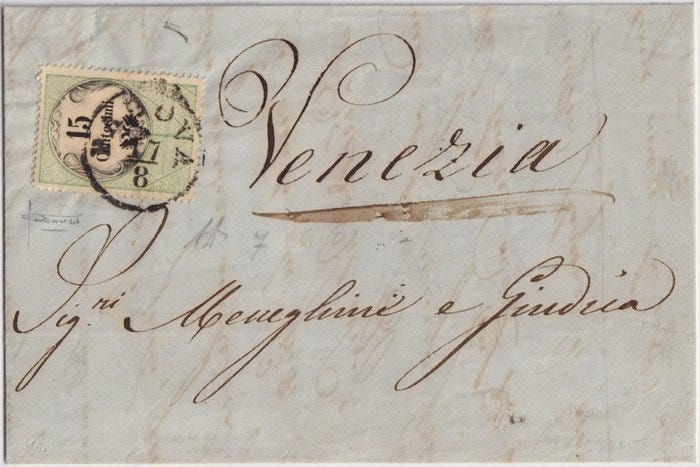 15
Centesimi
OVA
17
8
Venezia
Sig.ri Meneghini e Giudica
7